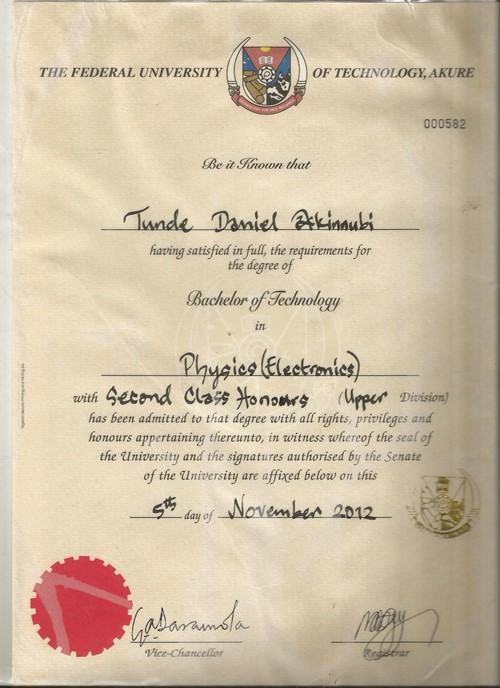 THE FEDERAL UNIVERSITY OF TECHNOLOGY, AKURE
000582
Be it Known that
Tunde Daniel Akinnubi
having satisfied in full, the requirements for
the degree of
Bachelor of Technology
in
Physics (Electronics)
with Second Class Honours (Upper Division)
has been admitted to that degree with all rights, privileges and
honours appertaining thereunto, in witness whereof the seal of
the University and the signatures authorised by the Senate
of the University are affixed below on this
5th day of November 2012
Vice-Chancellor
Registrar